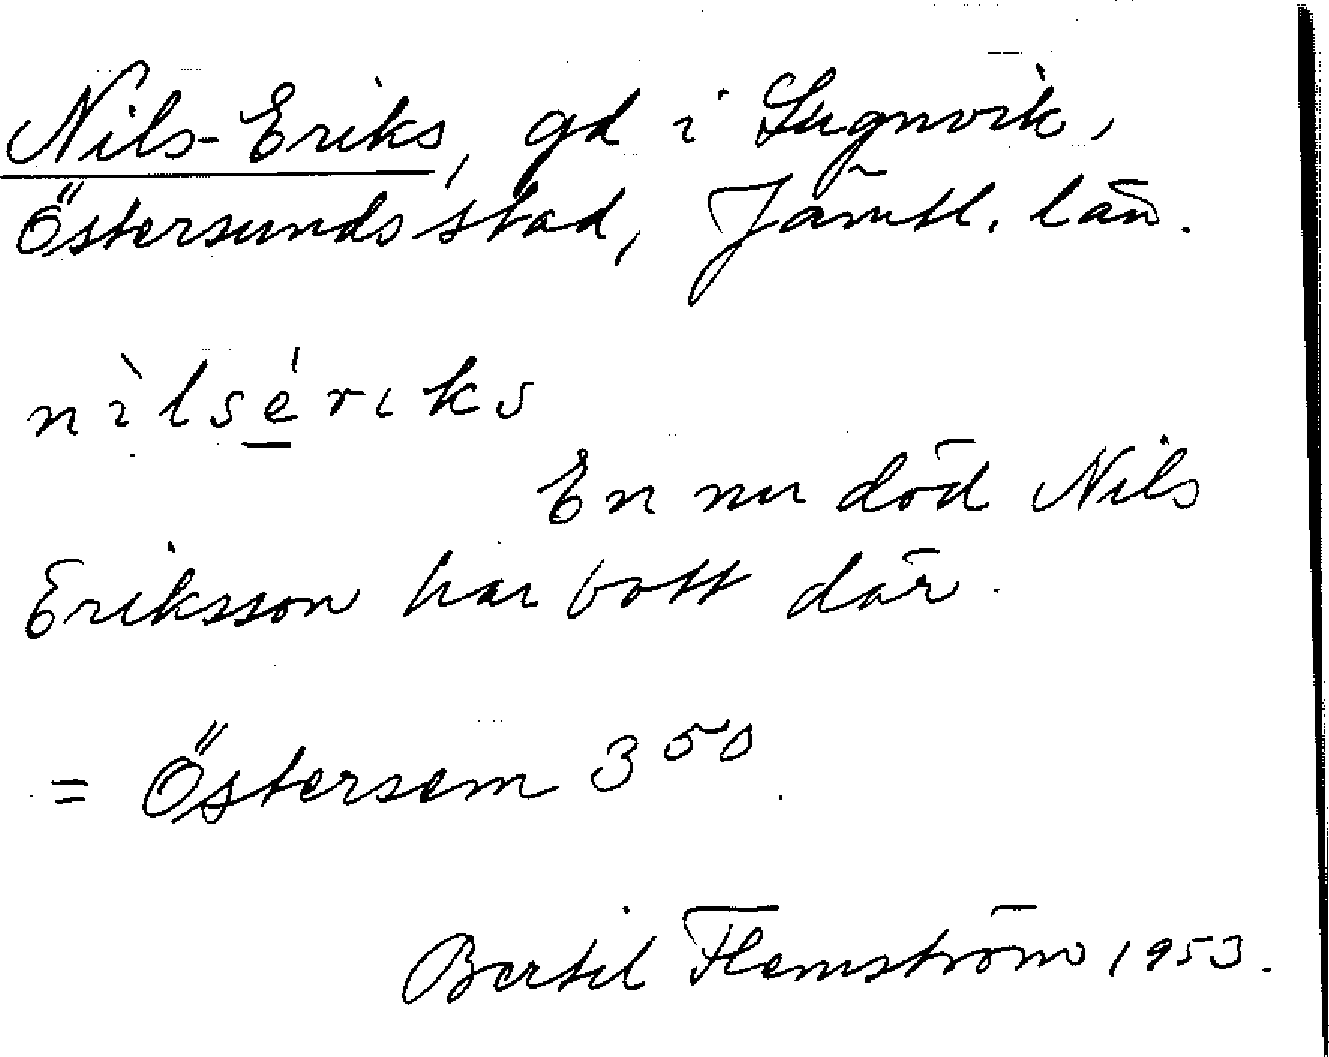 Nils-Eriks, gd i Lugnvik,
Östersunds stad, Jämtl. län.
nìlsériks
En nu död Nils
Eriksson har bott där.
= Östersem 3⁵⁰
Bertil Flemström 1953.